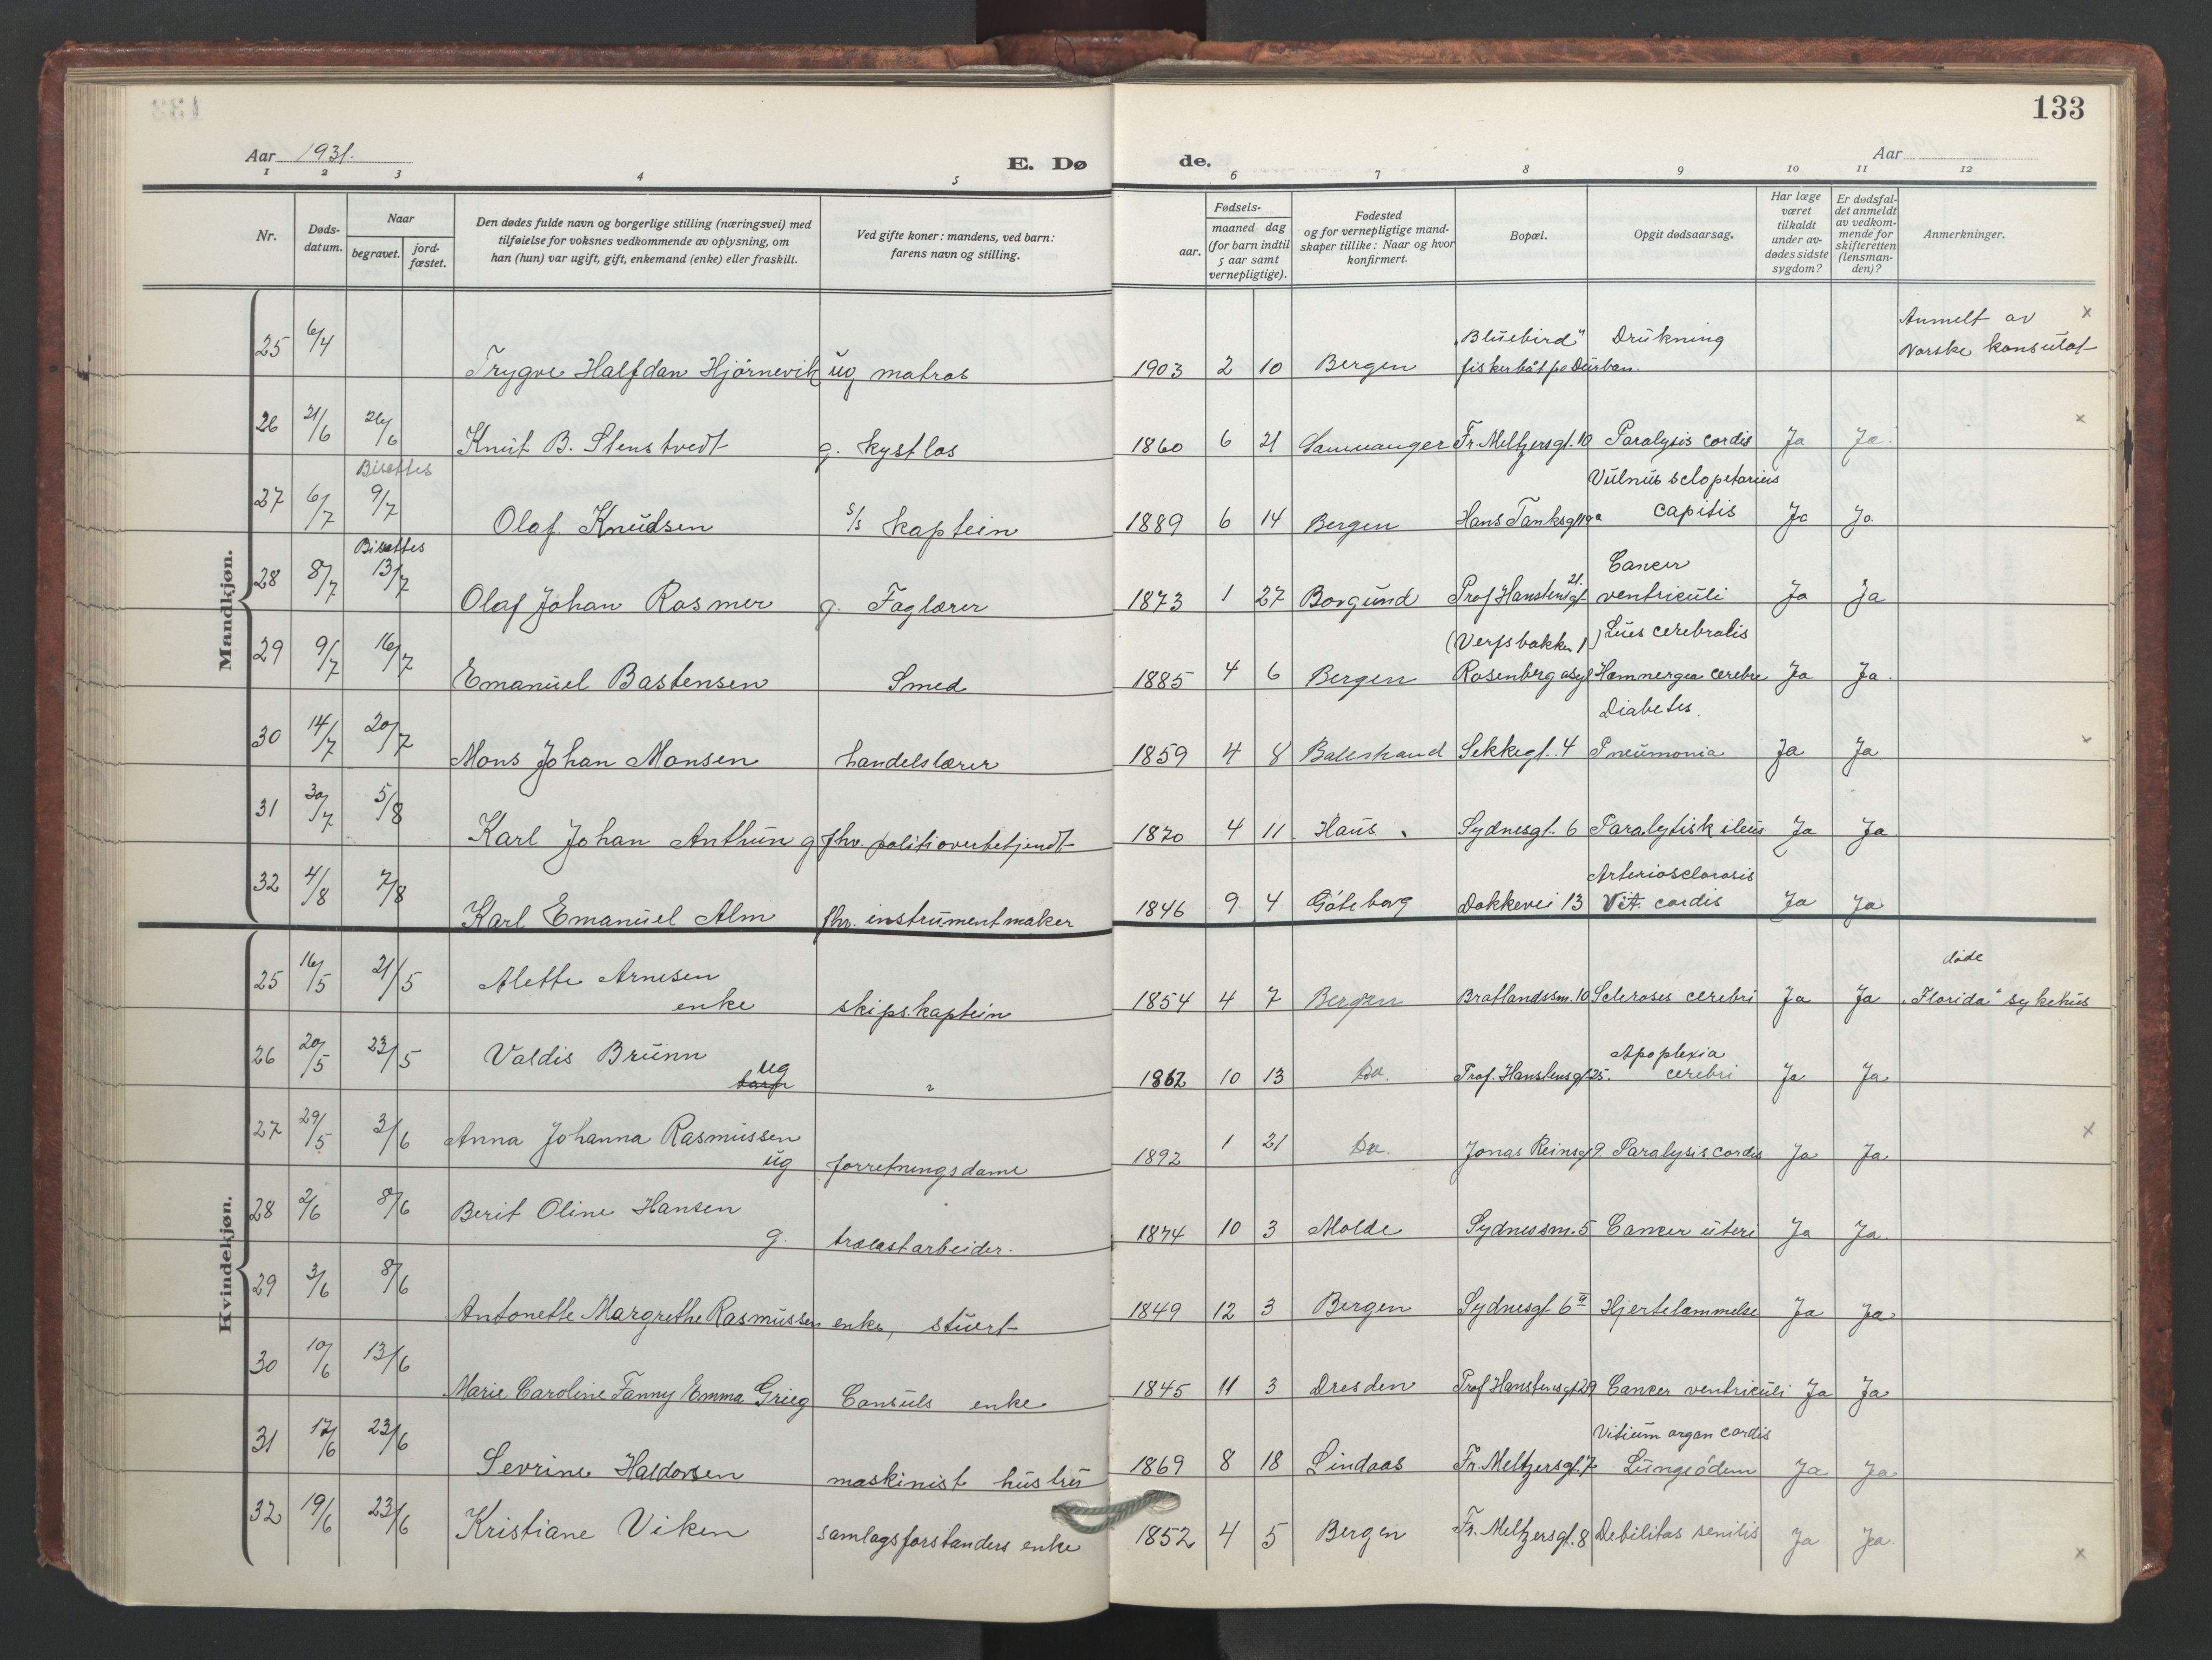 133
Aar 1931.
E. Døde.
Aar
1 2 3 4 5 6 7 8 9 10 11 12
Nr.
Døds-
datum.
Naar
begravet.
jord-
fæstet.
Den dødes fulde navn og borgerlige stilling (næringsvei) med
tilføielse for voksnes vedkommende av oplysning, om
han (hun) var ugift, gift, enkemand (enke) eller fraskilt.
Ved gifte koner: mandens, ved barn:
farens navn og stilling.
Fødsels-
aar.
maaned dag
(for barn indtil
5 aar samt
vernepligtige).
Fødested
og for vernepligtige mand-
skaper tillike: Naar og hvor
konfirmert.
Bopæl.
Opgit dødsaarsag.
Har læge
været
tilkaldt
under av-
dødes sidste
sygdom?
Er dødsfal-
det anmeldt
av vedkom-
mende for
skifteretten
(lensman-
den)?
Anmerkninger.
Mandkjøn.
25 6/4 Trygve Halfdan Hjörnevik ug matros 1903 2 10 Bergen "Bluebird" fiskerbåt på Durban. Drukning Anmelt av Norske konsulat x
26 21/6 26/6 Knut B. Stenstvedt g. kystlos 1860 6 21 Samnanger Fr. Meltzersgt. 10 Paralysis cordis Ja Ja x
27 6/7 Bisattes 9/7 Olaf Knudsen s/s kaptein 1889 6 14 Bergen Hans Tanksgt 19a Vulnus sclopetarius capitis Ja Ja
28 8/7 Bisattes 13/7 Olaf Johan Rasmer g. Faglærer 1873 1 27 Borgund Prof Hanstensgt 21. Cancer ventriculi Ja Ja
29 9/7 16/7 Emanuel Bastensen Smed 1885 4 6 Bergen (Verfsbakken 1) Rosenberg asyl Lues cerebralis Hæmmergea cerebre Ja Ja
30 14/7 20/7 Mons Johan Monsen handelslærer 1859 4 8 Balestrand Sekkegt. 4 Diabetes. Pneumonia Ja Ja
31 30/7 5/8 Karl Johan Anthun g fhv. politioverbetjendt 1870 4 11 Haus Sydnesgt. 6 Paralytisk ileus Ja Ja
32 4/8 7/8 Karl Emanuel Alm fhv. instrumentmaker 1846 9 4 Göteborg Dokkevei 13 Arteriosclorosis Vit. cordis Ja Ja
Kvindekjøn.
25 16/5 21/5 Alette Arnesen enke skipskaptein 1854 4 7 Bergen Bratlandssm. 10 Scleroses cerebri Ja Ja døde "Florida" sykehus
26 20/5 23/5 Valdis Brunn ug " 1862 10 13 Do. Prof. Hanstensgt 25. Apoplexia cerebri Ja Ja
27 29/5 3/6 Anna Johanna Rasmussen ug forretningsdame 1892 1 21 Do. Jonas Reinsgt 9 Paralysis cordis Ja Ja x
28 2/6 8/6 Berit Oline Hansen g. trælastarbeider. 1874 10 3 Molde Sydnessm. 5 Cancer uteri Ja Ja
29 3/6 8/6 Antonette Margrethe Rasmussen enke, stuert 1849 12 3 Bergen Sydnesgt 6a Hjertelammelse Ja Ja
30 10/6 13/6 Marie Caroline Fanny Emma Grieg Consuls enke 1845 11 3 Dresden Prof Hanstensgt 29 Cancer ventriculi Ja Ja
31 17/6 23/6 Sevrine Haldorsen maskinist hustru 1869 8 18 Lindaas Fr. Meltzersgt. 7 Vitium organ cordis Lungeödem Ja Ja
32 19/6 23/6 Kristiane Viken samlagsforstanders enke 1852 4 5 Bergen Fr. Meltzersgt. 8 Debilitas senilis Ja Ja x